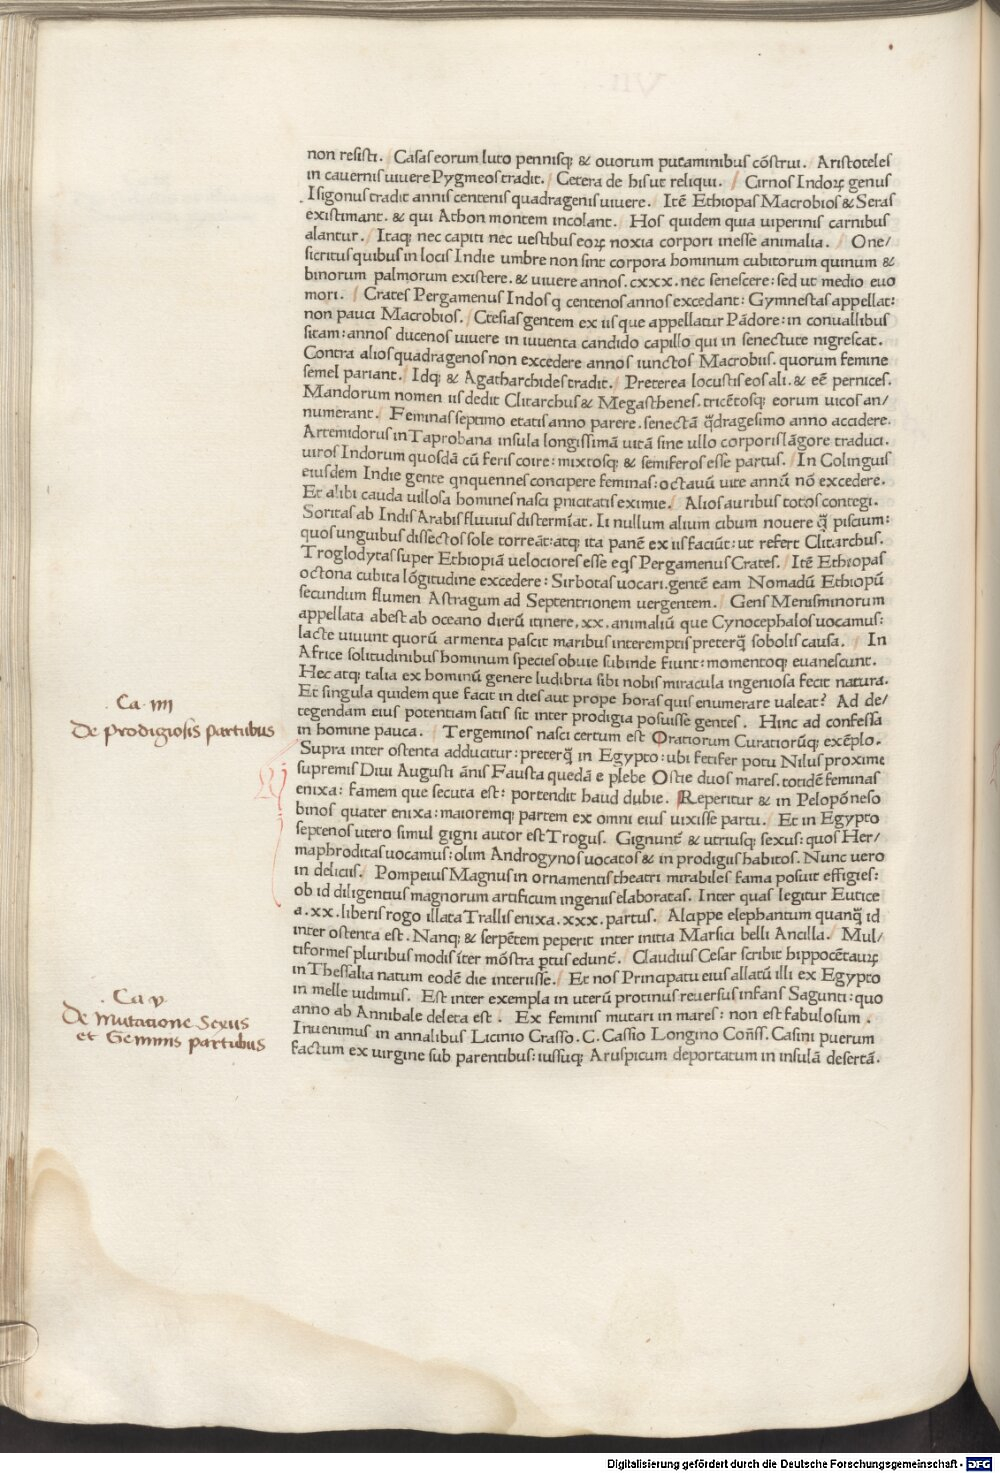 VII
non resisti. Casas eorum luto pennisq; & ouorum putaminibus cōstrui. Aristoteles
in cauernis uiuere Pygmeos tradit. Cetera de his ut reliqui. Cirnos Indoꝝ genus
Isigonus tradit annis centenis quadragenis uiuere. Itē Ethiopas Macrobios & Seras
existimant. & qui Athon montem incolant. Hos quidem quia uiperinis carnibus
alantur. Itaq; nec capiti nec uestibus eoꝝ noxia corpori inesse animalia. One/
sicritus quibus in locis Indie umbre non sint corpora hominum cubitorum quinum &
binorum palmorum existere. & uiuere annos. cxxx. nec senescere: sed ut medio euo
mori. Crates Pergamenus Indos q centenos annos excedant: Gymnestas appellat:
non pauci Macrobios. Ctesias gentem ex iis que appellatur Pādore: in conuallibus
sitam: annos ducenos uiuere in iuuenta candido capillo qui in senectute nigrescat.
Contra alios quadragenos non excedere annos iunctos Macrobiis. quorum femine
semel pariant. Idq; & Agatharchides tradit. Preterea locustis eos ali. & eē pernices.
Mandorum nomen iis dedit Clitarchus & Megasthenes. tricētosq; eorum uicos an/
numerant. Feminas septimo etatis anno parere. senectā q̄dragesimo anno accidere.
Artemidorus in Taprobana insula longissimā uitā sine ullo corporis lāgore traduci.
uiros Indorum quosdā cū feris coire: mixtosq; & semiferos esse partus. In Colinguis
eiusdem Indie gente qnquennes concipere feminas: octauū uite annū nō excedere.
Et alibi cauda uillosa homines nasci pnicitatis eximie. Alios auribus totos contegi.
Soritas ab Indis Arabis fluuius distermīat. Ii nullum alium cibum nouere q̄ piscium:
quos unguibus dissectos sole torreāt: atq; ita panē ex iis faciūt: ut refert Clitarchus.
Troglodytas super Ethiopiā uelociores esse eqs Pergamenus Crates. Itē Ethiopas
octona cubita lōgitudine excedere: Sirbotas uocari. gentē eam Nomadū Ethiopū
secundum flumen Astragum ad Septentrionem uergentem. Gens Menisminorum
appellata abest ab oceano dierū itinere. xx. animaliū que Cynocephalos uocamus:
lacte uiuunt quorū armenta pascit maribus interemptis preterq̄ sobolis causa. In
Africe solitudinibus hominum species obuie subinde fiunt: momentoq; euanescunt.
Hec atq; talia ex hominū genere ludibria sibi nobis miracula ingeniosa fecit natura.
Et singula quidem que facit in dies aut prope horas quis enumerare ualeat? Ad de/
tegendam eius potentiam satis sit inter prodigia posuisse gentes. Hinc ad confessa
in homine pauca. Tergeminos nasci certum est Oratiorum Curatiorūq; exēplo.
Ca. IIII
De prodigiosis partubus
Supra inter ostenta adducitur: preterq̄ in Egypto: ubi fetifer potu Nilus proxime
supremis Diui Augusti ānis Fausta quedā e plebe Ostie duos mares. totidē feminas
enixa: famem que secuta est: portendit haud dubie. Reperitur & in Pelopōneso
binos quater enixa: maioremq; partem ex omni eius uixisse partu. Et in Egypto
septenos utero simul gigni autor est Trogus. Gignunt̄ & utriusq; sexus: quos Her/
maphroditas uocamus: olim Androgynos uocatos & in prodigiis habitos. Nunc uero
in deliciis. Pompeius Magnus in ornamentis theatri mirabiles fama posuit effigies:
ob id diligentius magnorum artificum ingeniis elaboratas. Inter quas legitur Eutice
a. xx. liberis rogo illata Trallis enixa. xxx. partus. Alcippe elephantum quanq̄ id
inter ostenta est. Nanq; & serpētem peperit inter initia Marsici belli Ancilla. Mul/
tiformes pluribus modis īter mōstra ptus edunt̄. Claudius Cesar scribit hippocētauꝝ
in Thessalia natum eodē die interiisse. Et nos Principatu eius allatū illi ex Egypto
in melle uidimus. Est inter exempla in uterū protinus reuersus infans Sagunti: quo
anno ab Annibale deleta est. Ex feminis mutari in mares: non est fabulosum.
Ca V
De mutatione Sexus
et Geminis partubus
Inuenimus in annalibus Licinio Crasso. C. Cassio Longino Con̄ss. Casini puerum
factum ex uirgine sub parentibus: iussuq; Aruspicum deportatum in insulā desertā.
Digitalisierung gefördert durch die Deutsche Forschungsgemeinschaft - DFG